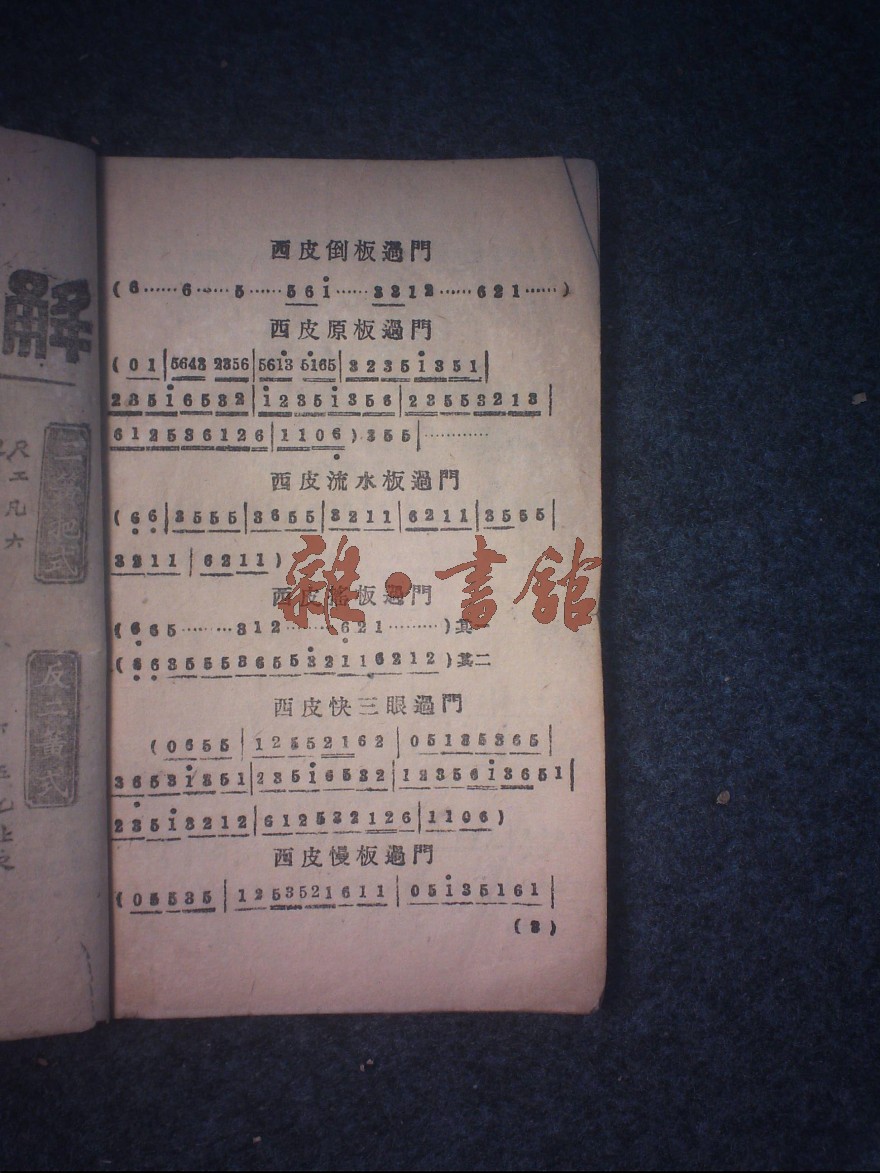 解
尺工凡六
反二黃式
西皮倒板過門
(6……6……5……561……3212……621……)
西皮原板過門
(01|5643 2356|5613 5165|32351351|
23516532|12351356|23553213|
6125386126|1106)355|…………
西皮流水板過門
(66|3555|3655|3211|6211|3555|
3211|6211)
西皮搖板過門
(665……312……621………)其一
(663555365532116212)其二
西皮快三眼過門
(0655|12552162|05135365|
36531351|23516532|12356136 51|
23513212|612532126|1106)
西皮慢板過門
(05535|1253521611|05135161|
(3)
雜·書館